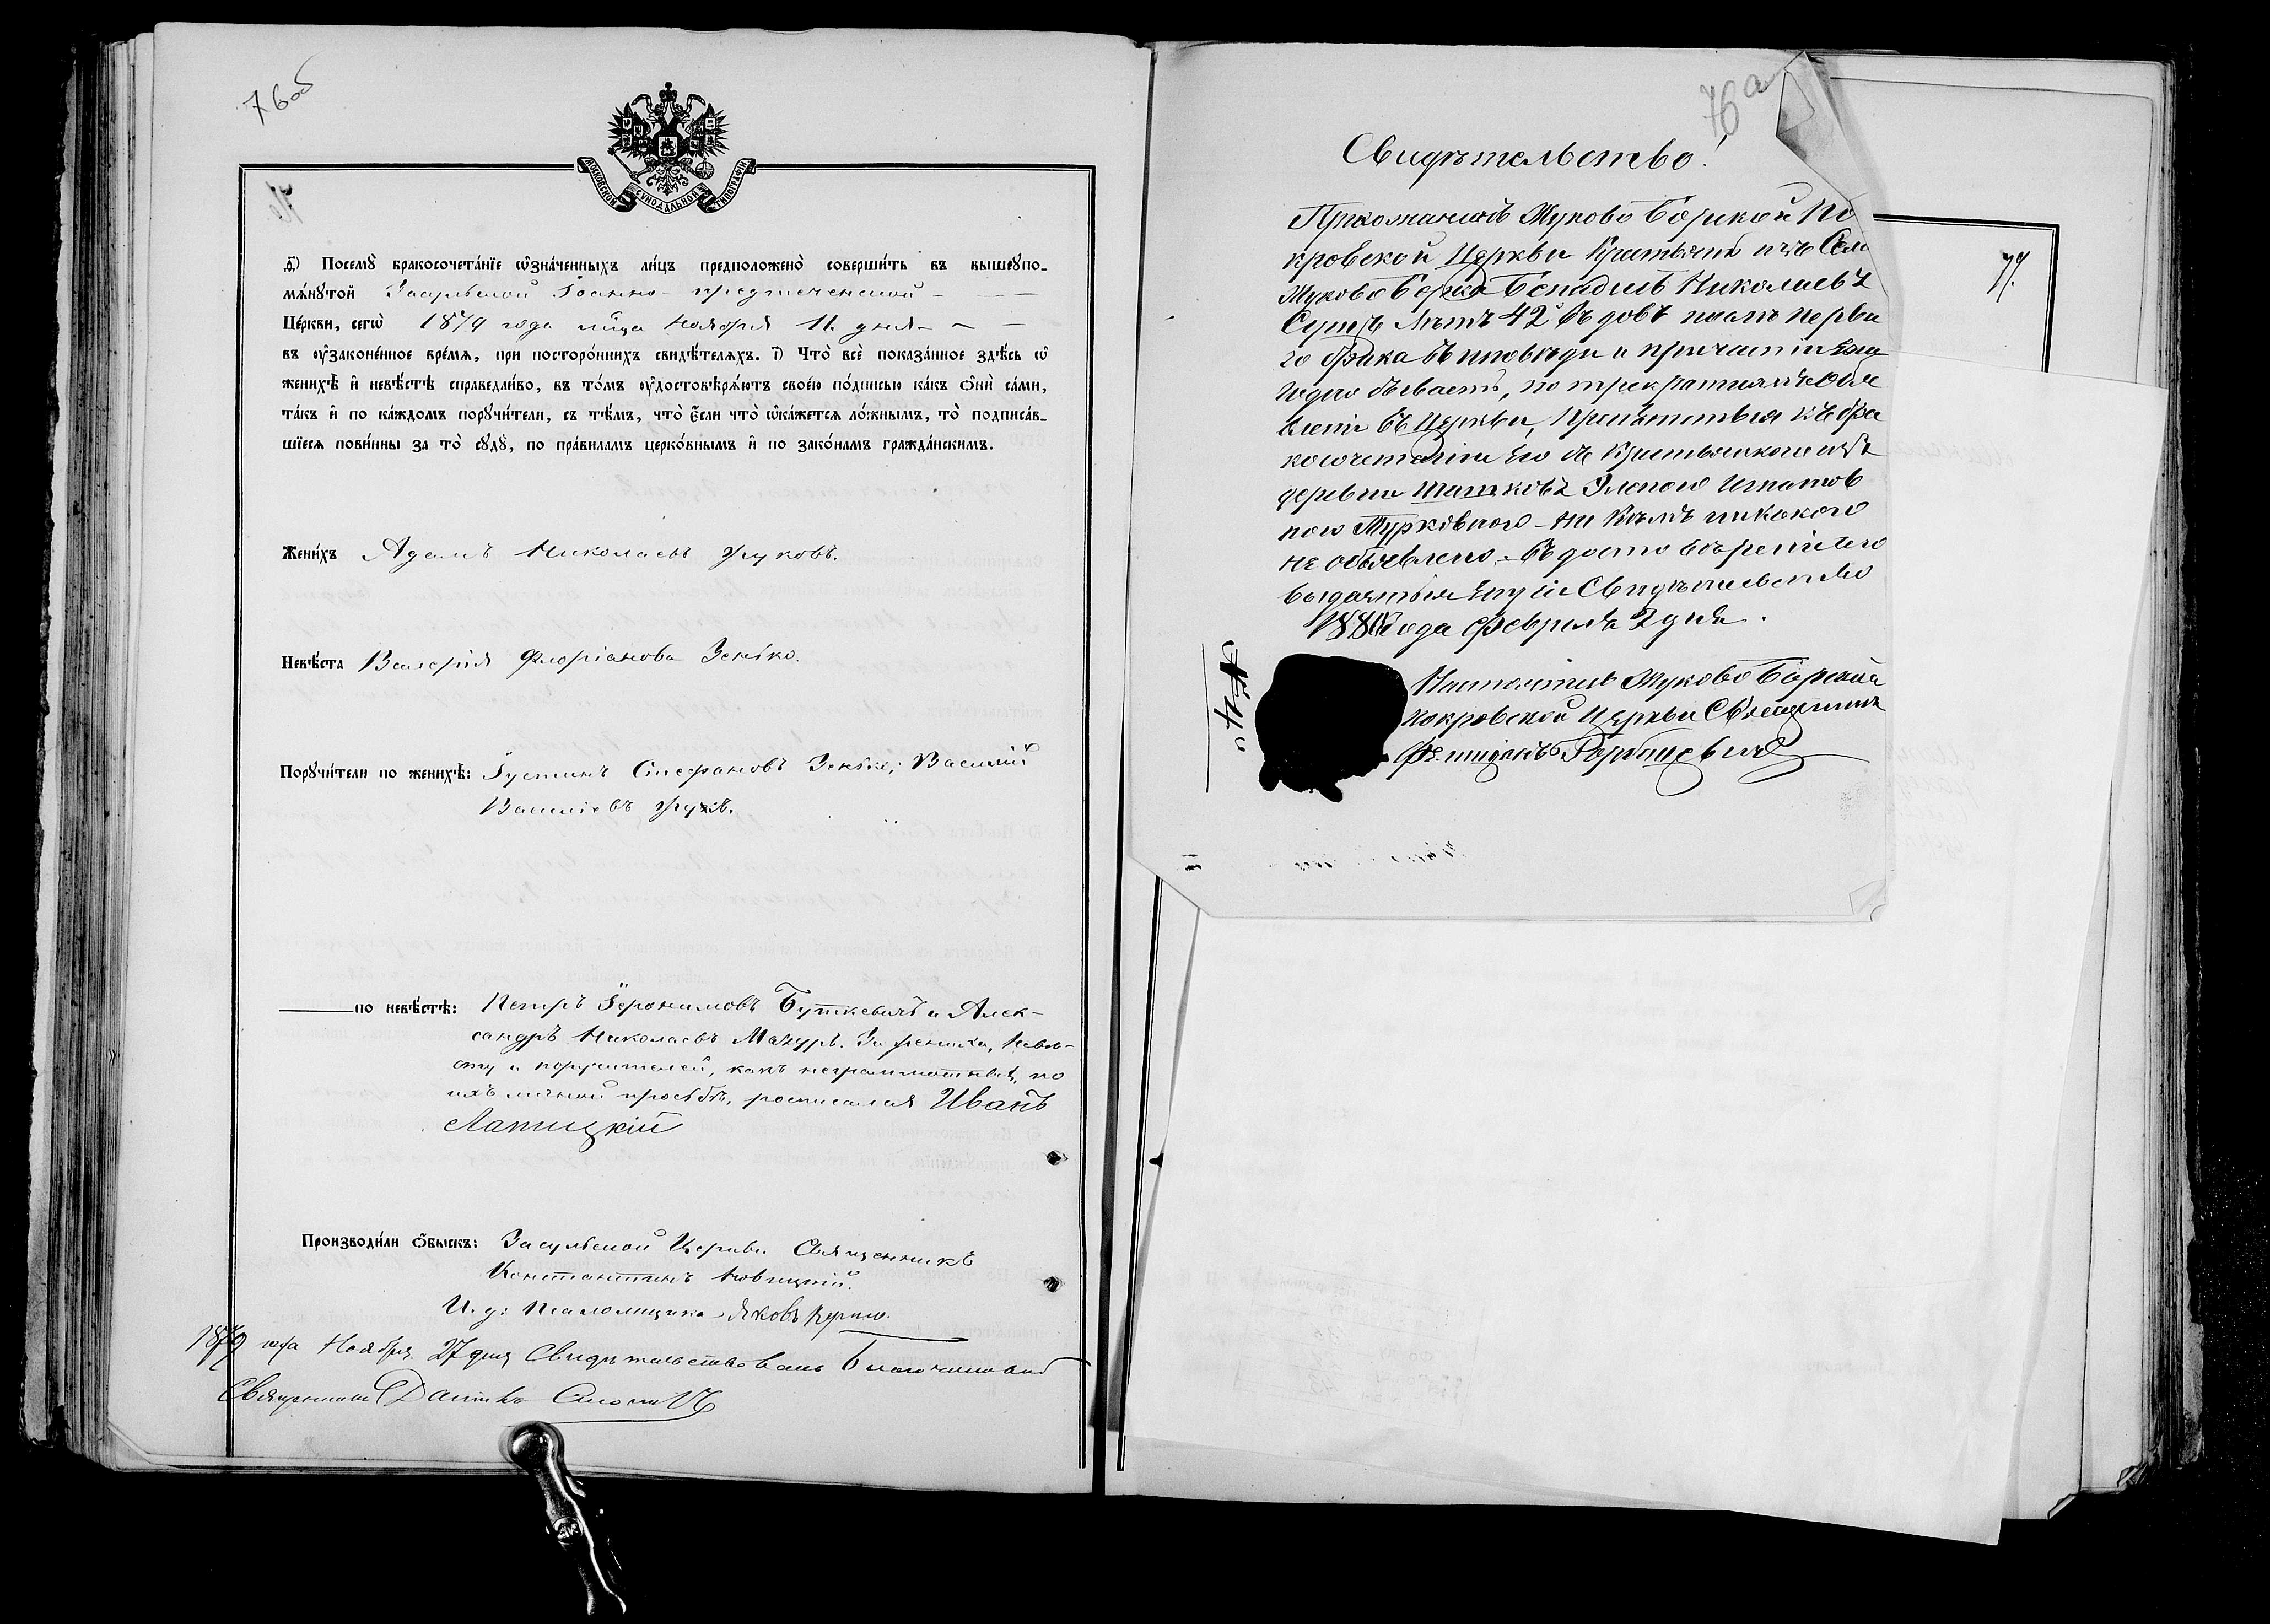 76 об
МОСКОВСКОЙ СѴНОДАЛЬНОЙ ТИПОГРАФІИ
Посемꙋ̀ бракосочета́нїе ѡ҆зна́ченныхъ ли́цъ предположено̀ совершить въ вышеꙋпо-
мѧ́нꙋтой Засульской Іоанно-предтеченской - - -
Це́ркви, сегѡ̀ 1879 года м-ца ноября 11. дня - - -
въ ᲂу҆законе́нное вре́мѧ, при посторо́ннихъ свидѣ́телѧхъ. з҃) Что̀ всѐ пока́занное здѣ́сь ѡ҆
женихѣ̀ и҆ невѣ́стѣ справедли́во, въ то́мъ ᲂу҆достовѣрѧ́ютъ свое́ю по́дписью ка́къ ѻ҆нѝ са́ми,
та́къ и҆ по ка́ждомъ порꙋчи́тели, съ тѣ́мъ, что̀ є҆́сли что̀ ѡ҆ка́жетсѧ ло́жнымъ, то̀ подписа́в-
шїесѧ пови́нны за то̀ сꙋдꙋ̀, по пра́виламъ церко́внымъ и҆ по зако́намъ гражда́нскимъ.
Жени́хъ Адамъ Николаевъ Жуковъ.
Невѣ́ста Валерія Флоріанова Зенько.
Порꙋчи́тели по женихѣ̀: Іустинъ Стефановъ Зенько; Василій
Василіевъ Жукъ.
по невѣ́стѣ: Петръ Іеронимовъ Буткевичъ и Алек-
сандръ Николаевъ Мазуръ. За жениха, невѣ-
сту и поручителей, какъ неграмотныхъ, по
ихъ личной просьбѣ, росписался Иванъ
Лапицкій
Производи́ли ѻ҆́быскъ: Засульской Церкви Священникъ
Константинъ Новицкій.
И. д: Псаломщика Яковъ
1879 года Ноября 27 дня Свидѣтельствовалъ Благочинный
Священникъ
76 а
Свидѣтельство!
Прихожанинъ Жуково Борской По
кровской Церкви Крестьянинъ изъ Села
Жуково Борка Николаевъ
лѣтъ 42 вдовъ послѣ перва
го брака въ исповѣди и причастіи еже
годно бываетъ, по троекратномъ объя
вленіи въ Церкви, препятствія къ бра
косочетанію его съ Крестьянкою изъ
деревни Игнатов
ною - ни кѣмъ никакого
не объявлено. - въ достовѣреніе чего
выдано ему сіе Свидѣтельство
года февраля 2 дня.
Настоятель Жуково Борской
Покровской Церкви Священникъ
Горбацевичъ
77.